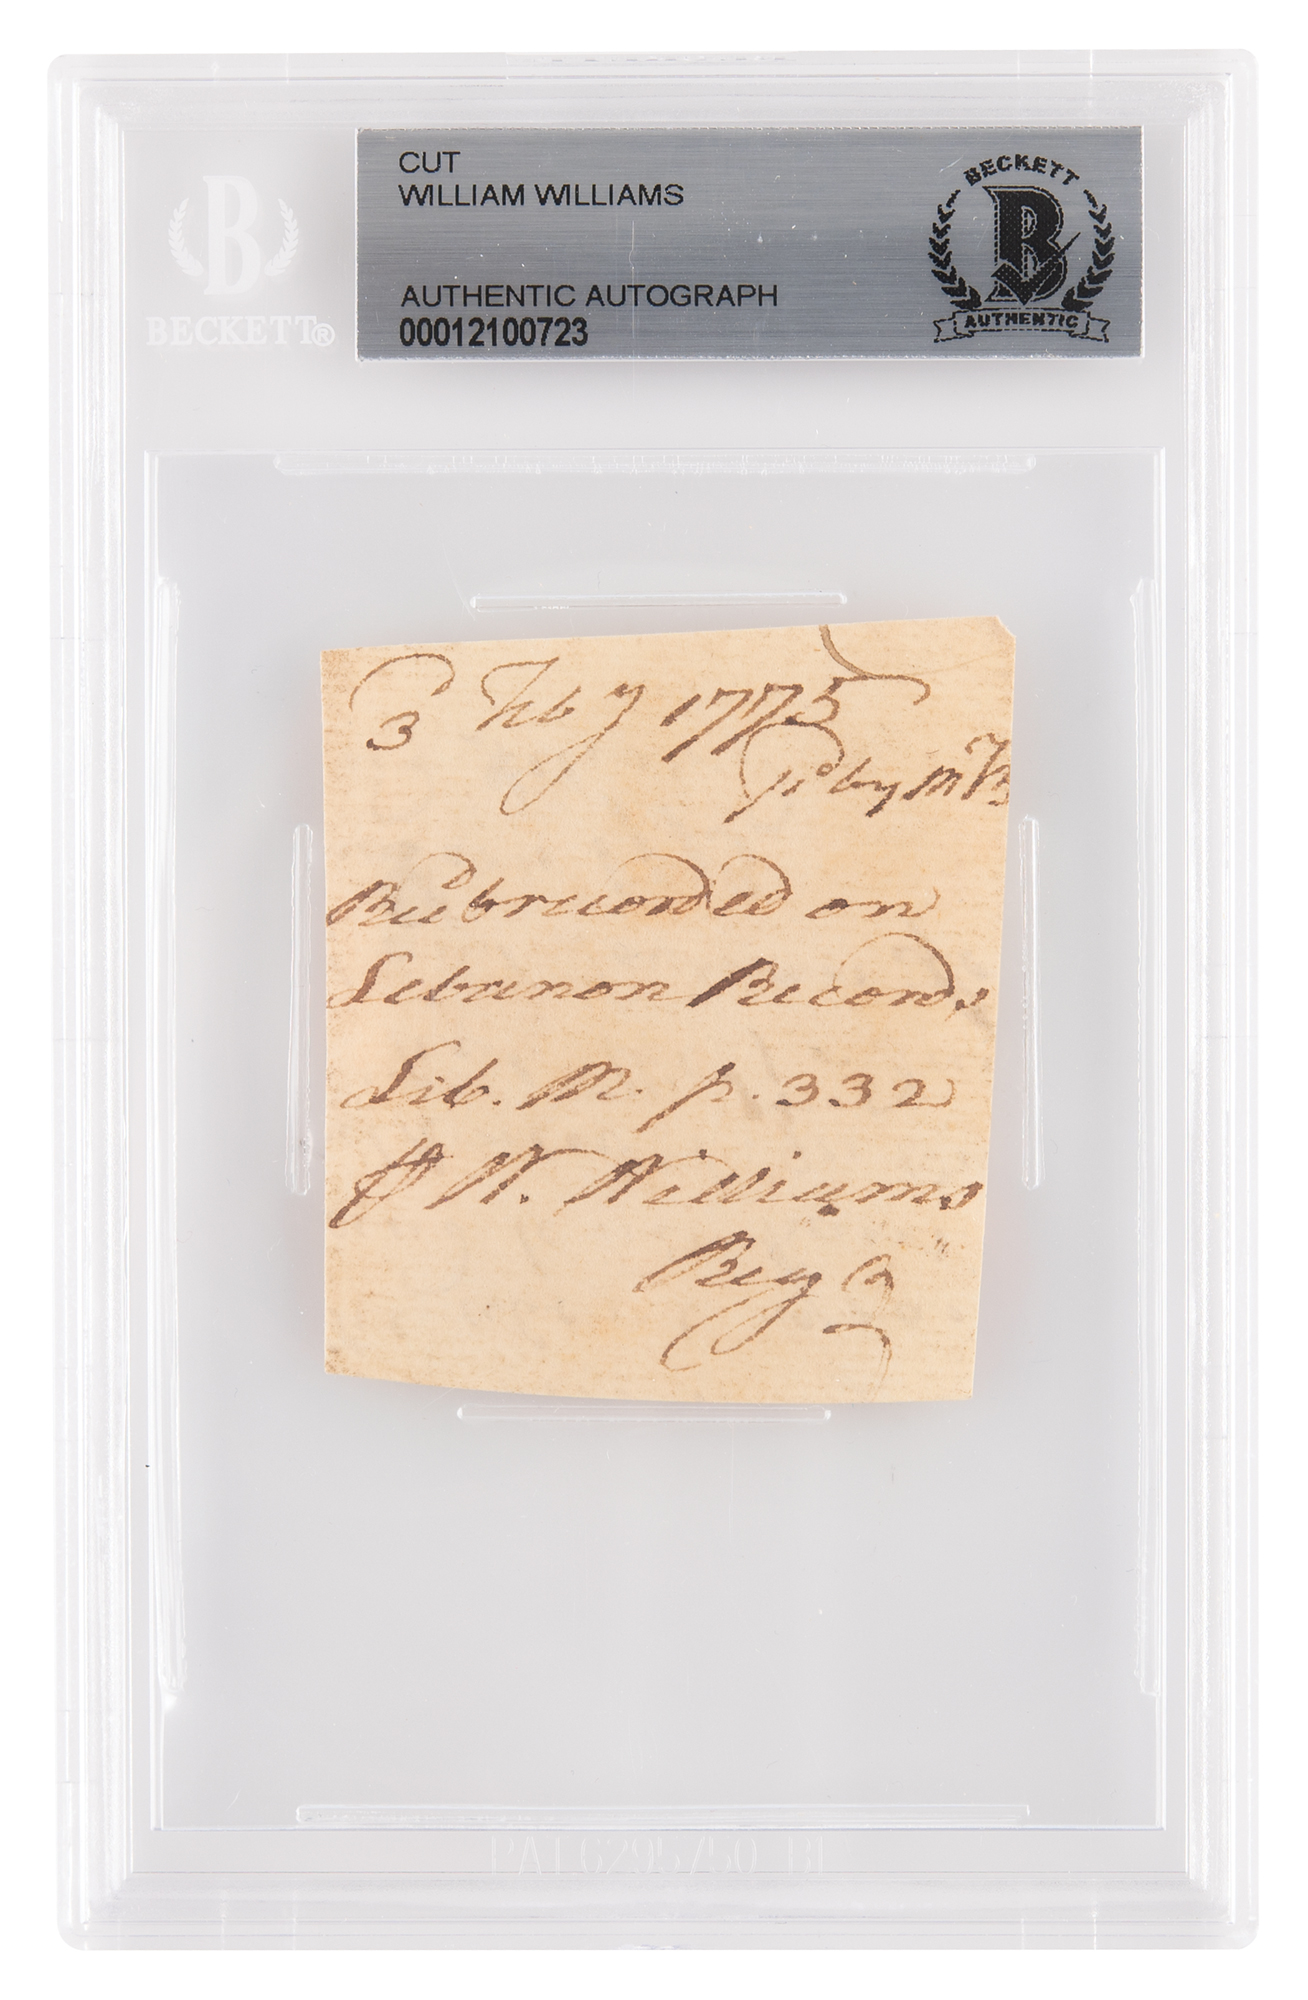 CUT
WILLIAM WILLIAMS
AUTHENTIC AUTOGRAPH
00012100723
BECKETT
B
AUTHENTIC
B
BECKETT®
3 Feby 1775
by
Recd & recorded on
Lebanon Records
Lib. M. p. 332
W. Williams
Regr